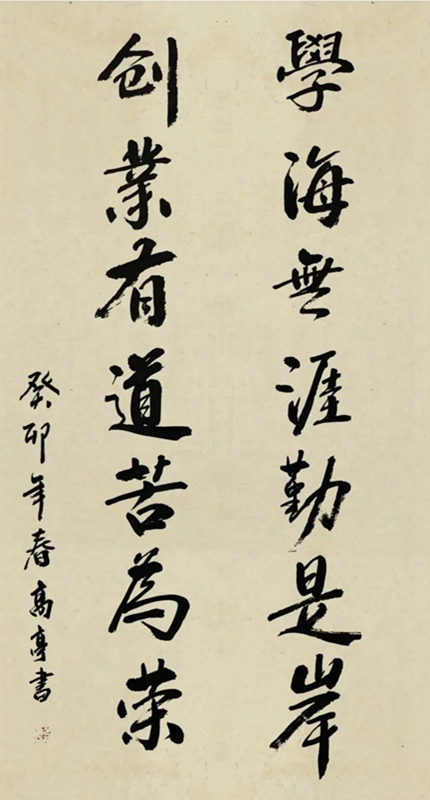 學海無涯勤是岸
创業有道苦為荣
癸卯年春高亭書